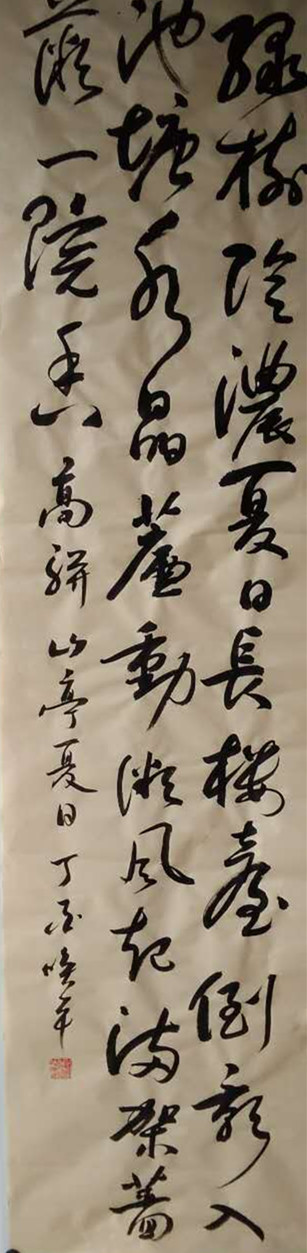 綠樹陰濃夏日長樓臺倒影入
池塘水晶簾動微風起滿架薔
薇一院香高駢山亭夏日丁酉喚平